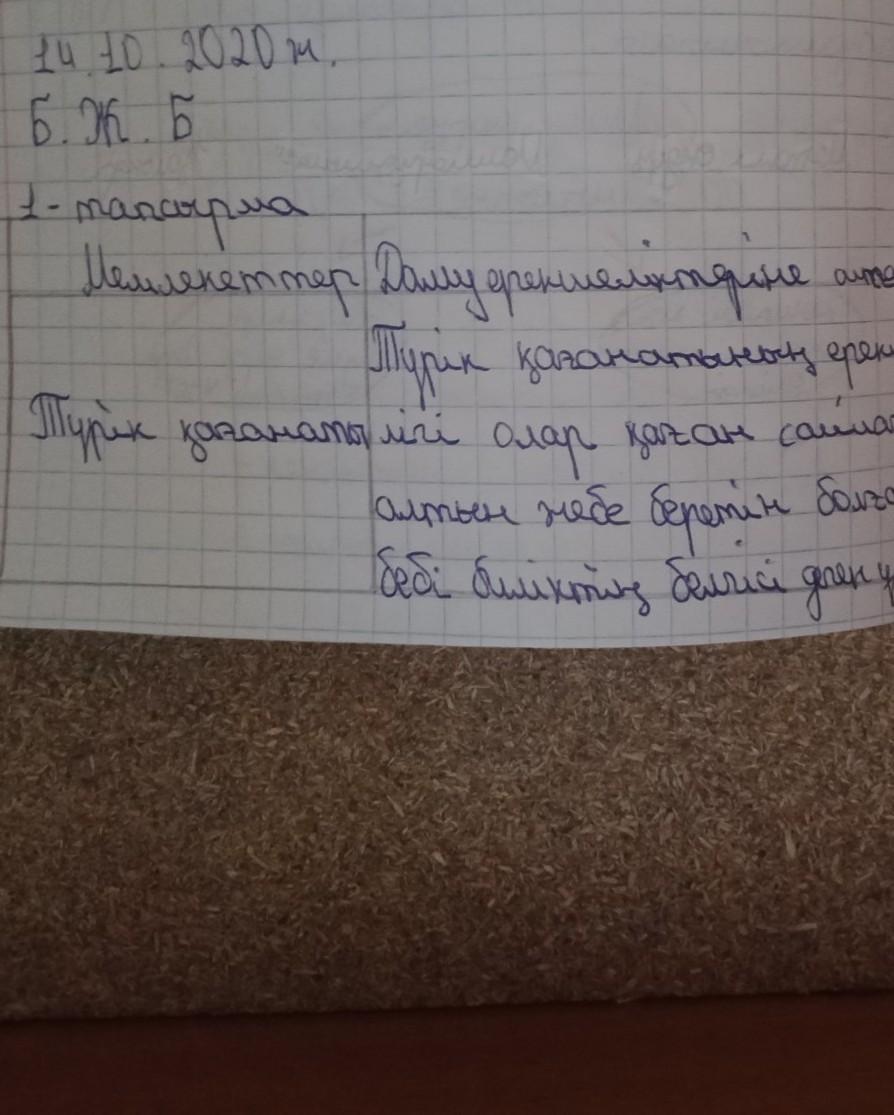 14.10.2020 ж.
Б.Ж.Б
1-тапсырма
Мемлекеттер Даму ерекшеліктеріне
Түрік қағанатының ерек
Түрік қағанаты лігі олар қаған сайла
алтын жебе беретін болға
бебі биліктің белгісі